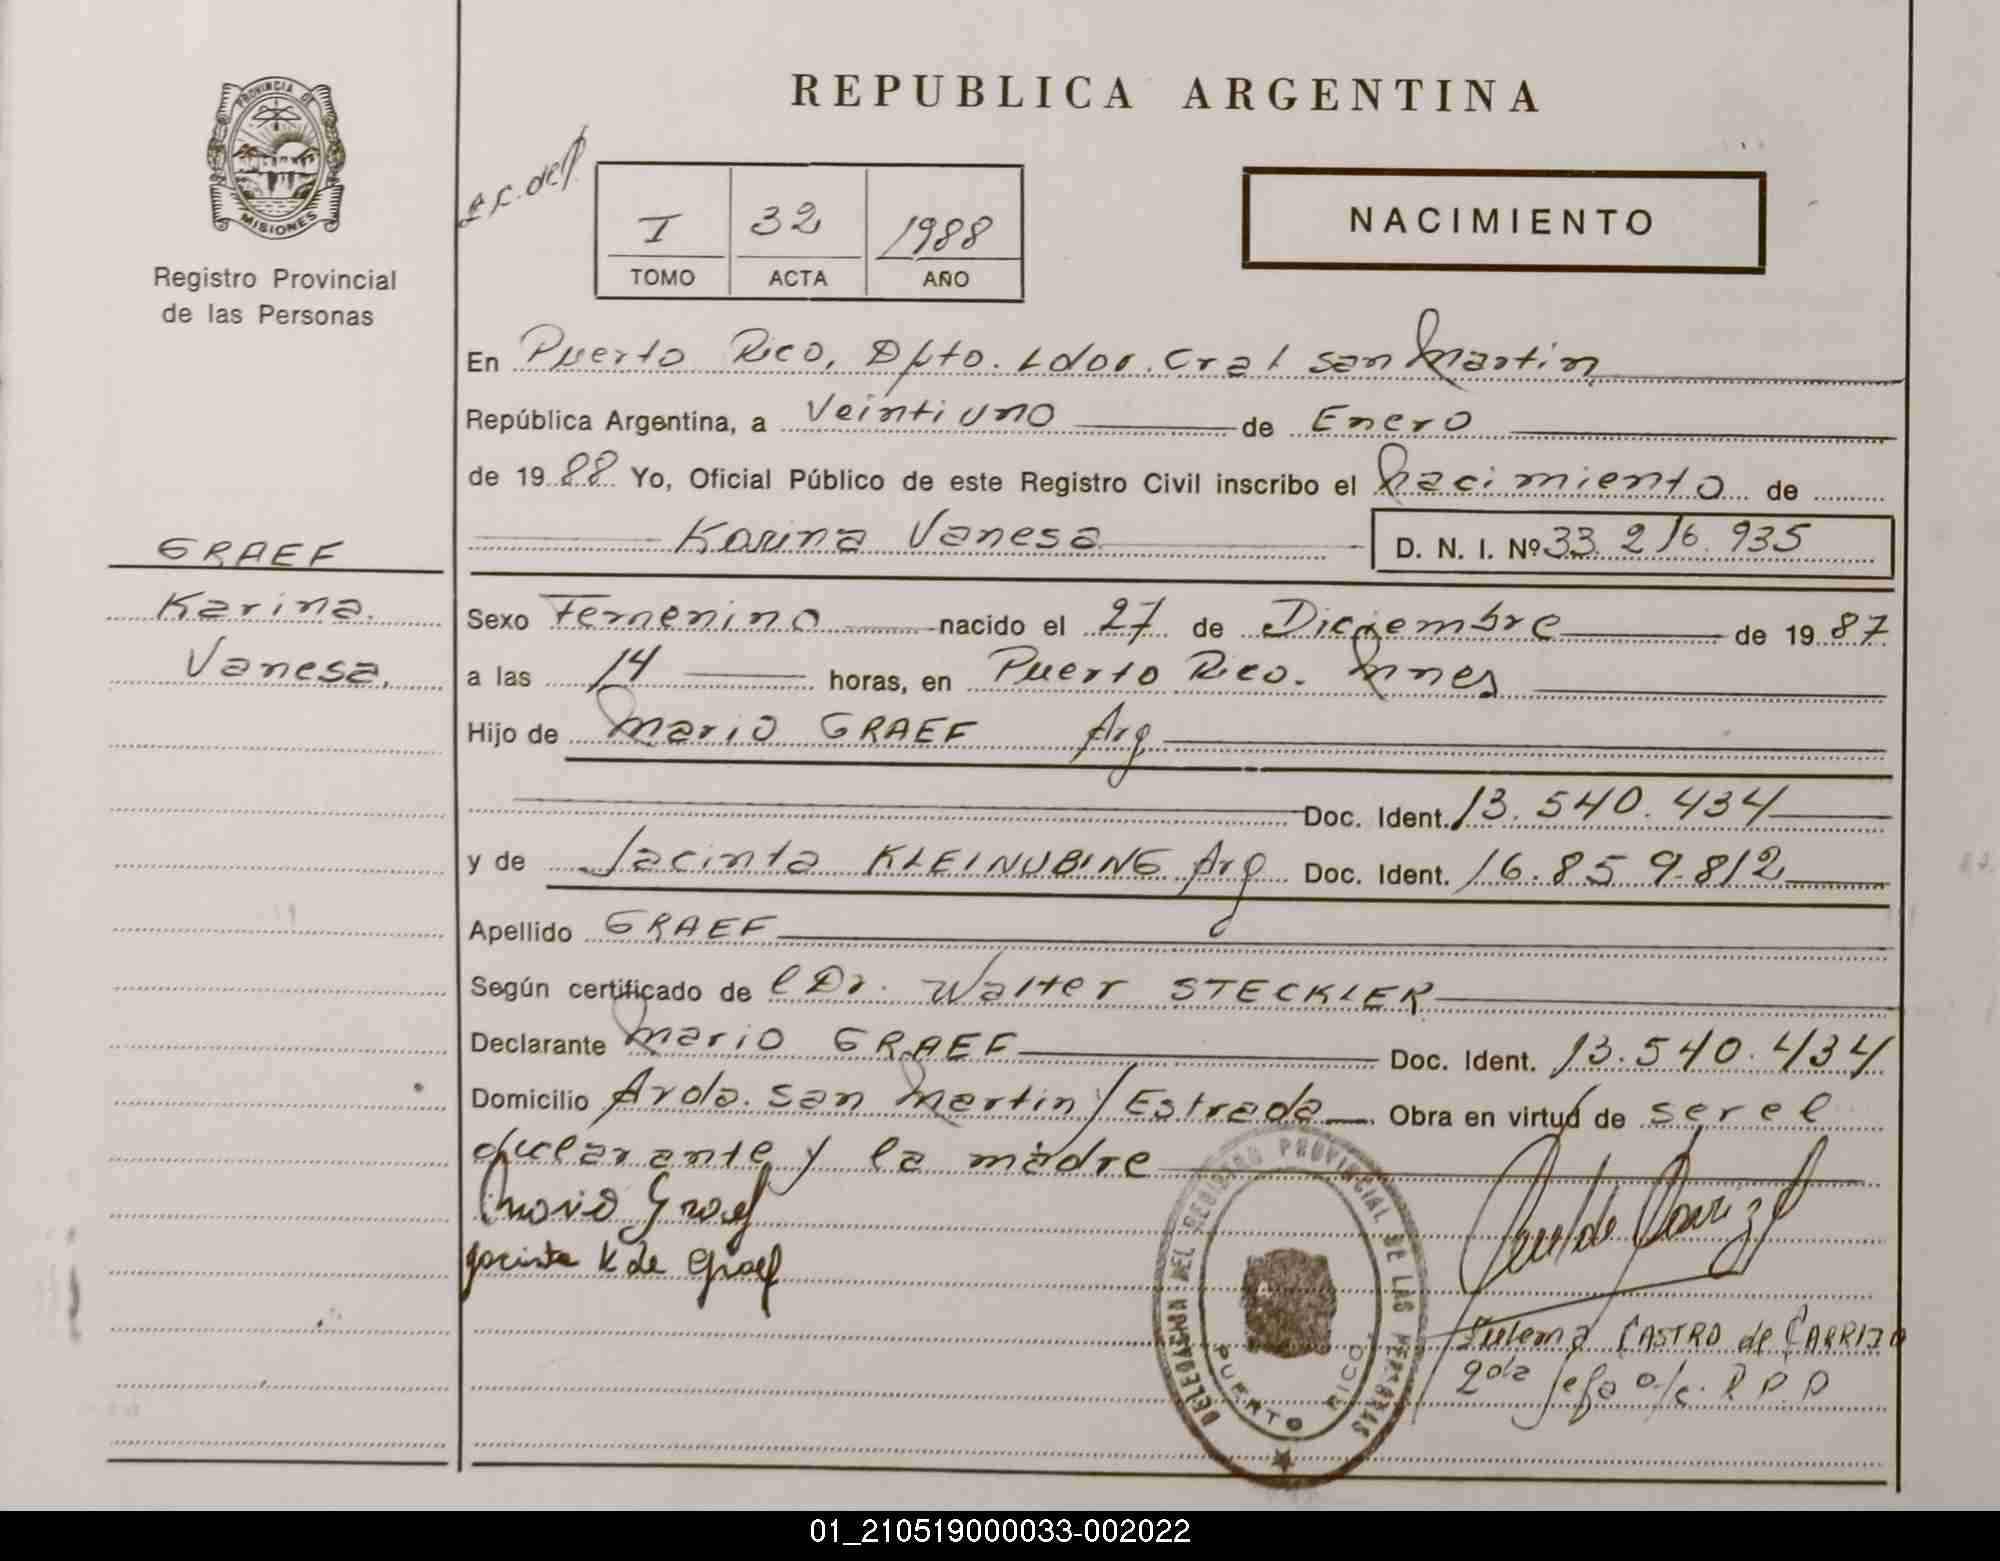 REPUBLICA ARGENTINA
PROVINCIA DE
MISIONES
Registro Provincial
de las Personas
I 32 1988
TOMO ACTA AÑO
NACIMIENTO
En Puerto Rico, Dpto. Ldor. Gral San Martin
República Argentina, a Veintiuno de Enero
de 1988 Yo, Oficial Público de este Registro Civil inscribo el Nacimiento de
Karina Vanesa D. N. I. Nº 33.216.935
GRAEF
Karina.
Vanesa.
Sexo Femenino nacido el 27 de Diciembre de 1987
a las 14 horas, en Puerto Rico. Mnes
Hijo de Mario GRAEF Arg
Doc. Ident. 13.540.434
y de Jacinta KLEINUBING Arg Doc. Ident. 16.859.812
Apellido GRAEF
Según certificado de l Dr. Walter STECKLER
Declarante Mario GRAEF Doc. Ident. 13.540.434
Domicilio Avda. San Martin y Estrada Obra en virtud de ser el
declarante y la madre
Mario Graef
Jacinta K de Graef
DELEGACION DEL REGISTRO PROVINCIAL DE LAS PERSONAS
PUERTO RICO
Zulema CASTRO de CARRIZO
2da Jefa a/c. R P P
01_210519000033-002022